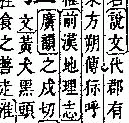 若說文代郡有
東方朔傳呼
前漢地理志
廣韻之戍切
文黃犬黑頭
食之善走